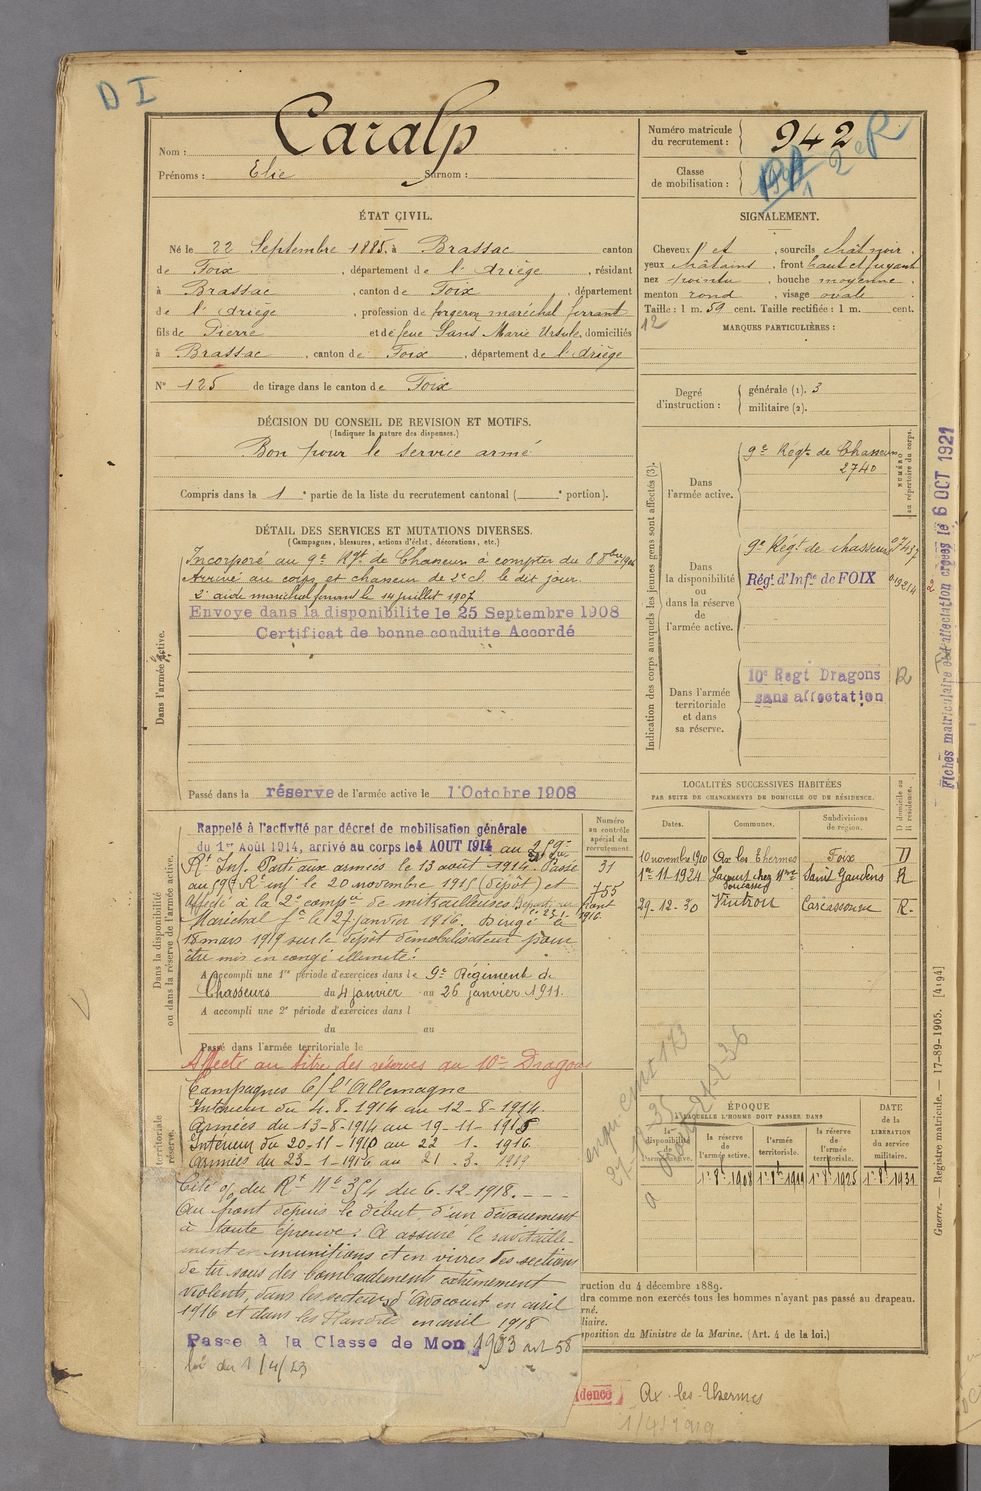 D I
Nom : Caralp
Prénoms : Elie Surnom :
Numéro matricule du recrutement : 942
Classe de mobilisation :
2e R
ÉTAT CIVIL.
Né le 22 Septembre 1885, à Brassac canton
de Foix, département de l'Ariège, résidant
à Brassac, canton de Foix, département
de l'Ariège, profession de forgeron maréchal ferrant
fils de Pierre et de feue Sans Marie Ursule, domiciliés
à Brassac, canton de Foix, département de l'Ariège
N° 125 de tirage dans le canton de Foix
SIGNALEMENT.
Cheveux et, sourcils chât noir,
yeux châtains, front haut et fuyant
nez pointu, bouche moyenne,
menton rond, visage ovale
Taille : 1 m. 59 cent. Taille rectifiée : 1 m. cent.
12
MARQUES PARTICULIÈRES :
Degré d'instruction :
générale (1). 3
militaire (2).
DÉCISION DU CONSEIL DE REVISION ET MOTIFS.
(Indiquer la nature des dispenses.)
Bon pour le service armé
Compris dans la 1e partie de la liste du recrutement cantonal ( e portion).
DÉTAIL DES SERVICES ET MUTATIONS DIVERSES.
(Campagnes, blessures, actions d'éclat, décorations, etc.)
Dans l'armée active.
Incorporé au 9e Régt de Chasseurs à compter du 8 8bre 1906
Arrivé au corps et chasseur de 2e cl. le dit jour.
2e aide maréchal ferrant le 14 juillet 1907
Envoyé dans la disponibilité le 25 Septembre 1908
Certificat de bonne conduite Accordé
Passé dans la réserve de l'armée active le 1 Octobre 1908
Indication des corps auxquels les jeunes gens sont affectés (3).
NUMÉRO au répertoire du corps.
Dans l'armée active.
9e Régt de Chasseurs
2740
Dans la disponibilité ou dans la réserve de l'armée active.
9e Régt de chasseurs
Régt d'Infie de FOIX
Dans l'armée territoriale et dans sa réserve.
10e Regt Dragons
sans affectation
R
Fiches matriculaire et d'affectation créées le 6 OCT 1921
Dans la disponibilité ou dans la réserve de l'armée active.
Numéro au contrôle spécial du recrutement
31
755
Rappelé à l'activité par décret de mobilisation générale
du 1er Août 1914, arrivé au corps le 4 AOUT 1914 au 259e
Rt Inf. Parti aux armées le 13 août 1914. Passé
au 59e Rt inf le 20 novembre 1915 (dépôt) et
Affecté à la 2e compie de mitrailleuses
Maréchal ft le 27 janvier 1916. Dirigé le
18 mars 1919 sur le dépôt démobilisateur pour
être mis en congé illimité.
A accompli une 1re période d'exercices dans le 9e Régiment de
Chasseurs du 4 janvier au 26 janvier 1911.
A accompli une 2e période d'exercices dans l
du au
Passé dans l'armée territoriale le
Affecté au titre des réserves au 10e Dragons
territoriale réserve.
Campagnes C/ l'Allemagne
Intérieur du 4.8.1914 au 12-8-1914.
Armées du 13-8-1914 au 19-11-1915
Intérieur du 20-11-1915 au 22-1-1916
Armées du 23-1-1916 au 21.3.1919
Cité o/ du Rt N° 354 du 6-12-1918.
Au front depuis le début, d'un dévouement
à toute épreuve : A assuré le ravitaille-
ment en munitions et en vivres des sections
de tir sous des bombardements extrêmement
violents, dans les secteurs d'Avocourt en avril
1916 et dans les Flandres en avril 1918
Passé à la Classe de Mon 1903 art 58
loi du 1/4/23
LOCALITÉS SUCCESSIVES HABITÉES
PAR SUITE DE CHANGEMENTS DE DOMICILE OU DE RÉSIDENCE.
Dates. Communes. Subdivisions de région. D domicile ou R résidence.
10 novembre 1910 Ax les Thermes Foix D
1er 11 1924 Lacourt chez Mme Saint Gaudens R
29-12-30 Vintrou Carcassonne R.
ÉPOQUE À LAQUELLE L'HOMME DOIT PASSER DANS
la disponibilité de l'armée active. la réserve de l'armée active. l'armée territoriale. la réserve de l'armée territoriale.
DATE DE LA LIBÉRATION du service militaire.
1er 8bre 1908 1er 8bre 1919 1er 8bre 1925 1er 8bre 1931
ruction du 4 décembre 1889.
dra comme non exercés tous les hommes n'ayant pas passé au drapeau.
rné.
liaire.
sposition du Ministre de la Marine. (Art. 4 de la loi.)
idence Ax-les-Thermes
1/4/1919
Guerre. — Registre matricule. — 17-89-1905. [4194]